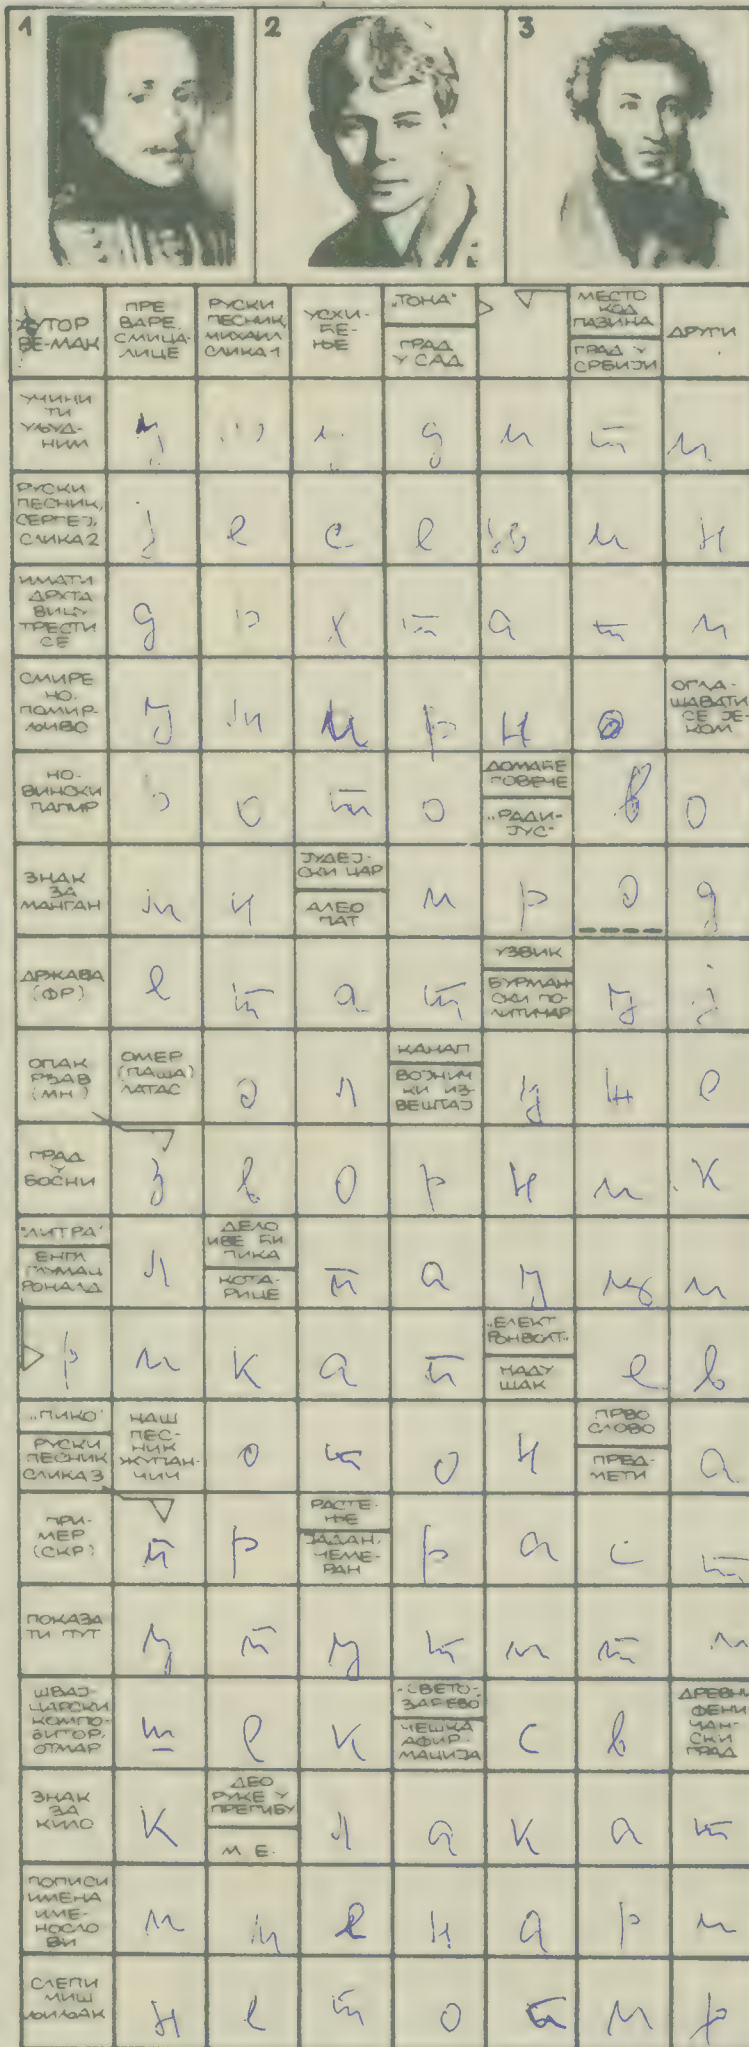 1 2 3
АУТОР ВЕ-МАК
ПРЕ ВАРЕ, СМИЦА- ЛИЦЕ
РУСКИ ПЕСНИК, МИХАИЛ СЛИКА 1
УСХИ- ЋЕ- ЊЕ
„ТОНА“
ГРАД У САД
МЕСТО КОД ПАЗИНА
ГРАД У СРБИЈИ
ДРУГИ
УЧИНИ ТИ УЉУД- НИМ
у љ у д и т и
РУСКИ ПЕСНИК, СЕРГЕЈ, СЛИКА 2
ј е с е њ и н
ИМАТИ ДРХТА ВИЦУ ТРЕСТИ СЕ
д р х т а т и
СМИРЕ НО, ПОМИР- ЉИВО
у м и р н о
ОГЛА- ШАВАТИ СЕ ЈЕ- КОМ
НО- ВИНСКИ ПАПИР
р о т о
ДОМАЋЕ ГОВЕЧЕ
„РАДИ- ЈУС“
в о
ЗНАК ЗА МАНГАН
м н
ЈУДЕЈ- СКИ ЦАР
АЛЕО ПАТ
и р о д
ДРЖАВА (ФР)
е т а т
УЗВИК
БУРМАН СКИ ПО- ЛИТИЧАР
у ј
ОПАК РЂАВ (МН)
ОМЕР (ПАША) ЛАТАС
о л
КАНАП
ВОЈНИЧ КИ ИЗ- ВЕШТАЈ
у ж е
ГРАД У БОСНИ
з в о р н и к
"ЛИТРА"
ЕНГЛ ГЛУМАЦ РОНАЛД
л
ДЕЛО ИВЕ ЋИ ПИКА
КОТА- РИЦЕ
п а у ц и
р и к а т
„ЕЛЕКТ РОНВОЛТ“
НАДУ ШАК
е в
„ПИКО“
РУСКИ ПЕСНИК СЛИКА 3
НАШ ПЕС- НИК ЖУПАН- ЧИЧ
о т о н
ПРВО СЛОВО
ПРЕД- МЕТИ
а
ПРИ- МЕР (СКР)
п р
РАСТЕ- ЊЕ
ЈАДАН, ЧЕМЕ- РАН
р а с т
ПОКАЗА ТИ ПУТ
у п у т и т и
ШВАЈ- ЦАРСКИ КОМПО- ЗИТОР, ОТМАР
ш е к
„СВЕТО- ЗАРЕВО“
ЧЕШКА АФИР- МАЦИЈА
с в
ДРЕВНИ ФЕНИ ЧАН- СКИ ГРАД
ЗНАК ЗА КИЛО
к
ДЕО РУКЕ У ПРЕГИБУ
М Е.
л а к а т
ПОПИСИ ИМЕНА ИМЕ- НОСЛО ВИ
и м е н а р и
СЛЕПИ МИШ ЉИЉАК
н е т о п и р